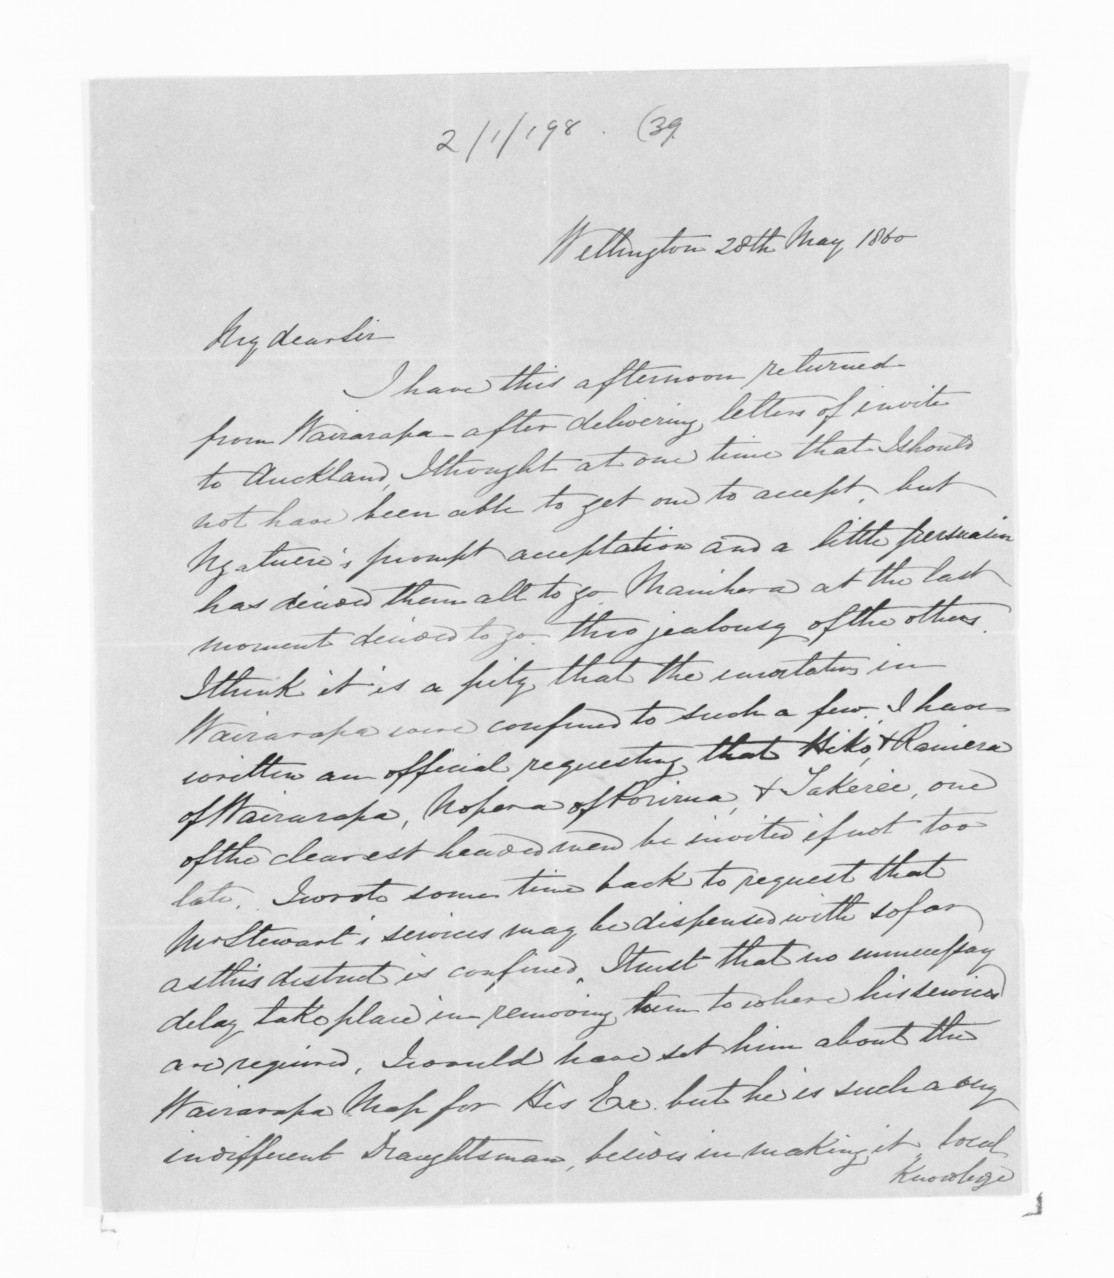 2/1/198 . (39
Wellington 28th May 1860
My dear Sir
I have this afternoon returned
from Wairarapa after delivering letters of invite
to Auckland, I thought at one time that I should
not have been able to get one to accept, but
Ngatuere's prompt acceptation and a little persuasion
has decided them all to go Manihera at the last
moment decided to go thro jealousy of the others.
I think it is a pity that the invitations in
Wairarapa were confined to such a few. I have
written an official requesting that Hiko, & Raniera
of Wairarapa, Nopera of Porirua, & Takerei, one
of the clearest headed men be invited if not too
late. I wrote some time back to request that
Mr Stewart's services may be dispensed with so far
as this district is confined, I trust that no unnecessary
delay take place in removing him to where his services
are required, I would have set him about the
Wairarapa Map for His Ex. but he is such a very
indifferent Draughtsman, besides in making it, local
Knowledge